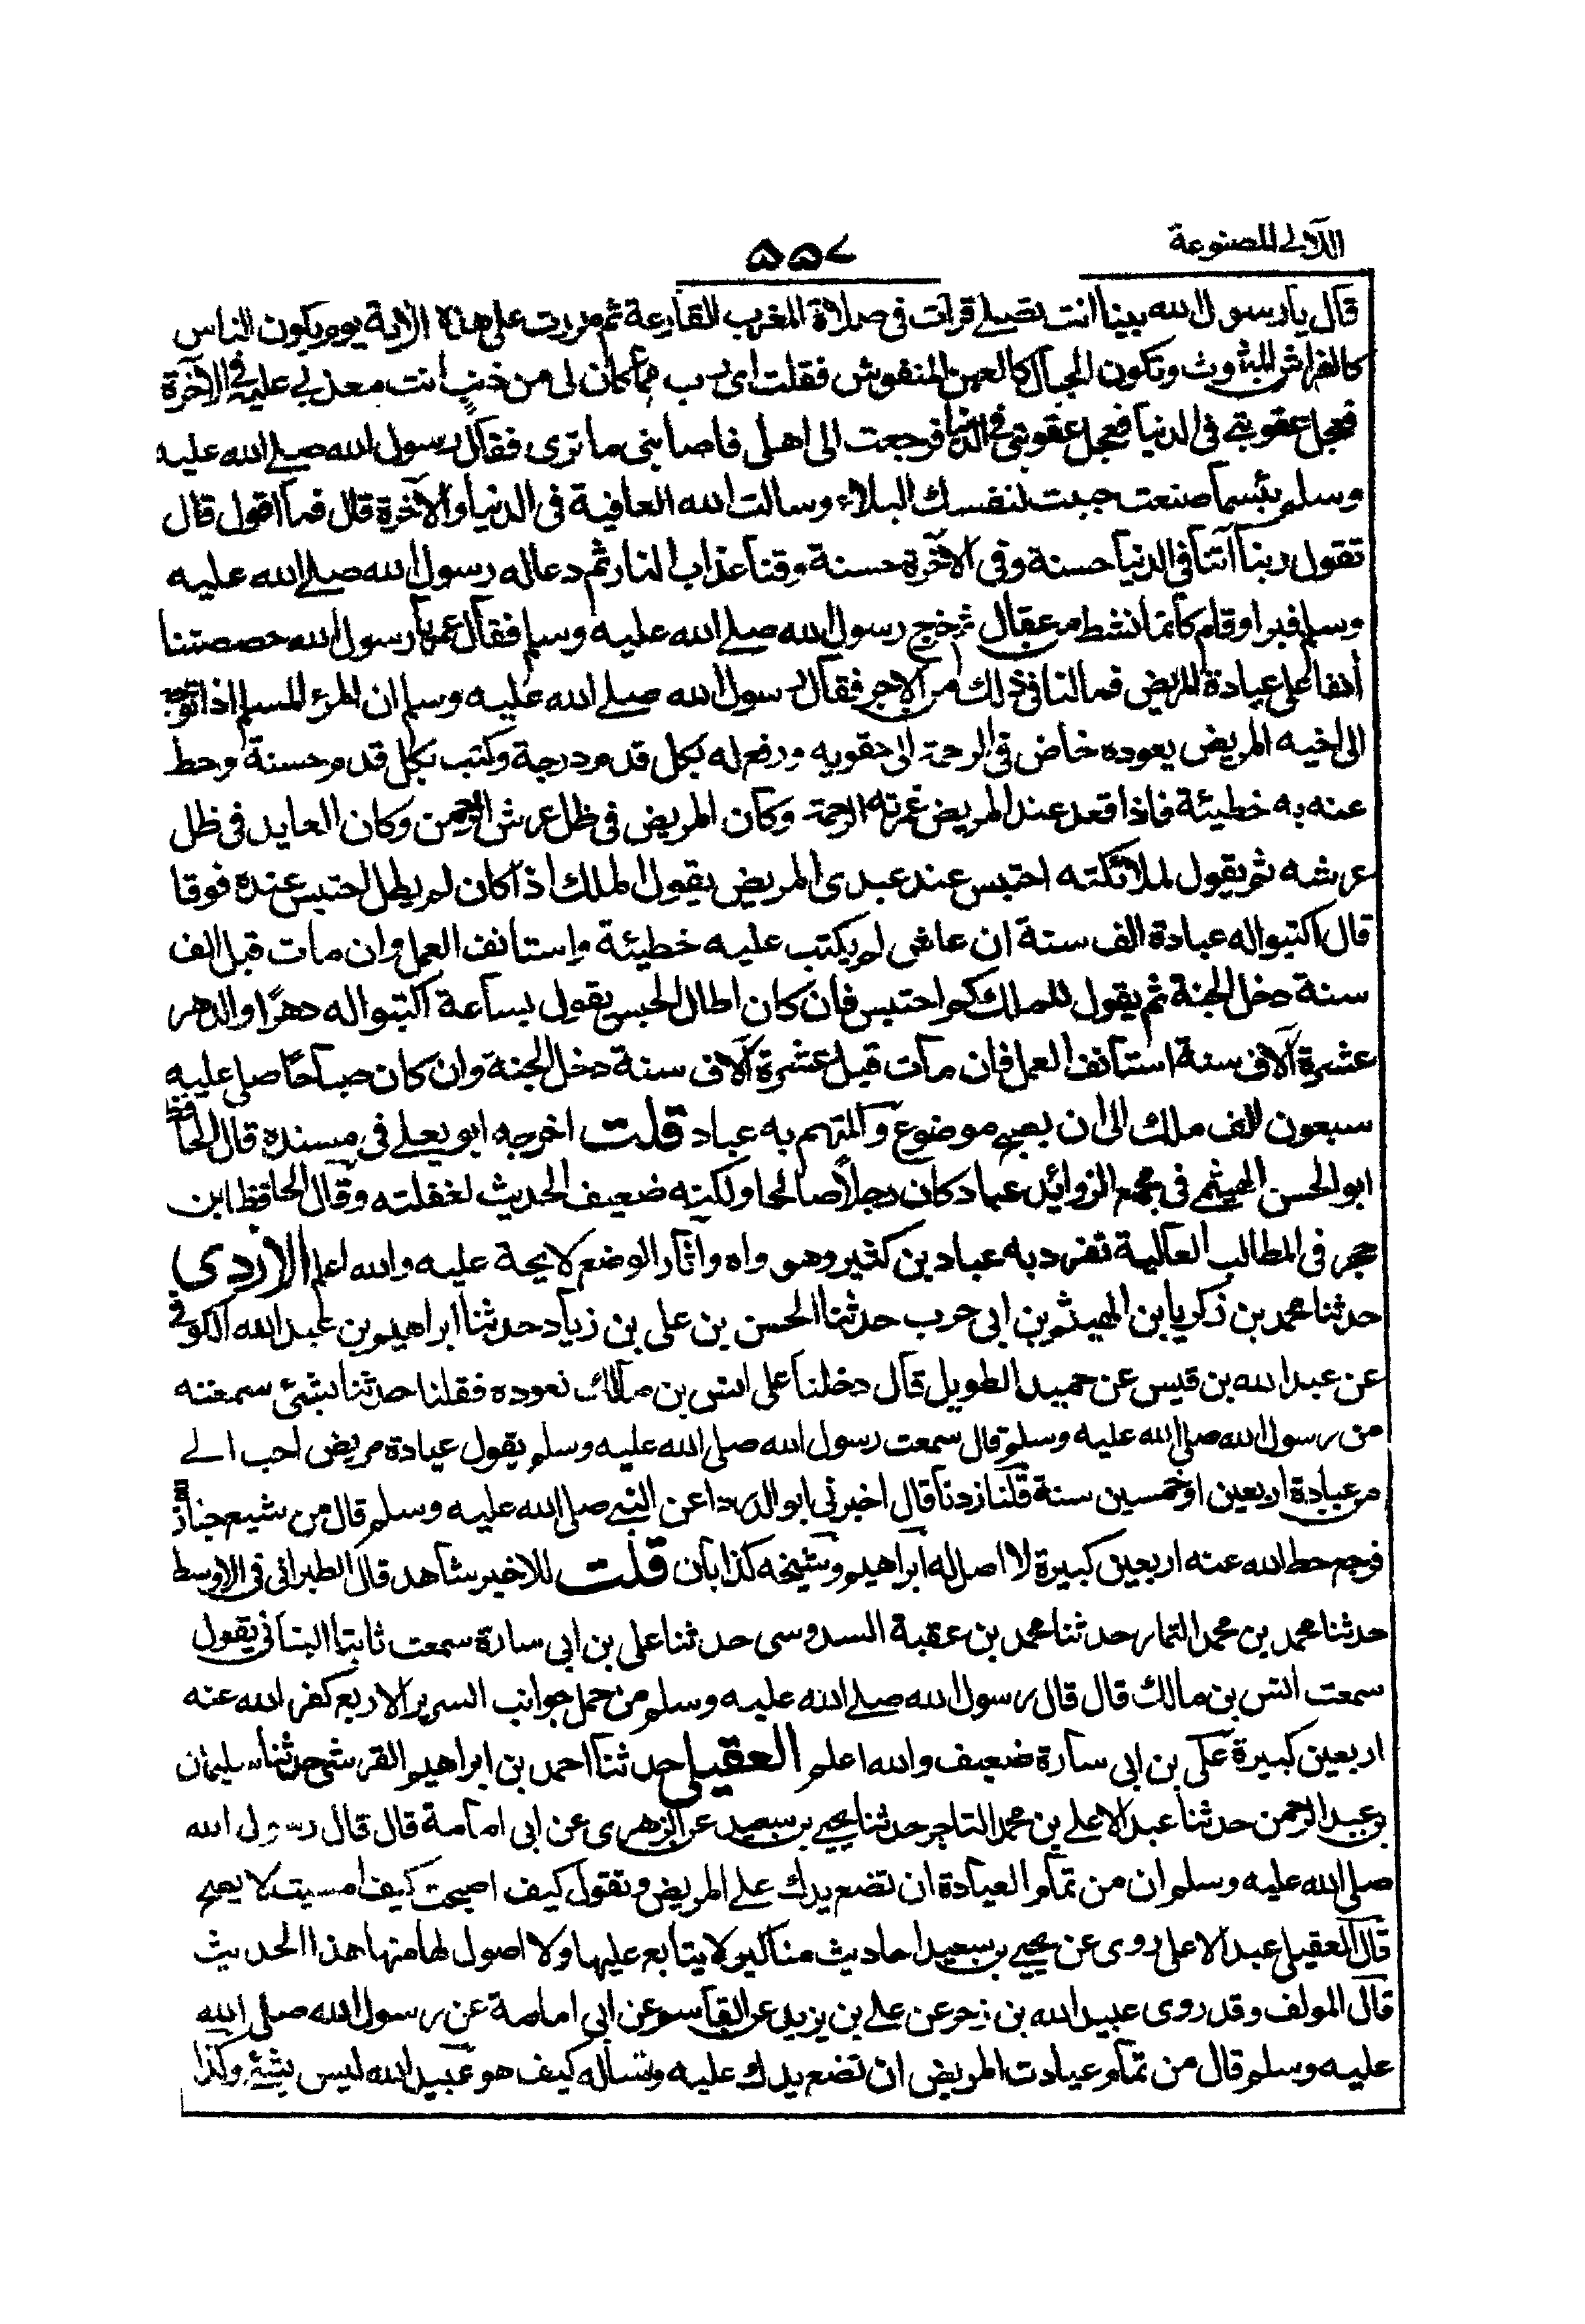 اللآلى المصنوعة
٥٥٧
قال يا رسول الله بينا انت تصلے قرات فى صلاة المغرب القارعة ثم مررت على هذه الاية يوم يكون الناس
كالفراش المبثوث وتكون الجبال كالعهن المنفوش فقلت اى رب مهما كان لى من ذنب انت معذبى عليه فى الآخرة
فعجل عقوبتى فى الدنيا فعجل عقوبتى فى الدنيا فرجعت الى اهلى فاصابنى ما ترى فقال رسول الله صلے الله عليه
وسلم بئسما صنعت جببت لنفسك البلاء وسالت الله العافية فى الدنيا والآخرة قال فما اقول قال
تقول ربنا آتنا فى الدنيا حسنة وفى الآخرة حسنة وقنا عذاب النار ثم دعا له رسول الله صلے الله عليه
وسلم فبرا وقام كانما نشط من عقال ثم خرج رسول الله صلے الله عليه وسلم فقال عمر يا رسول الله حصصتنا
أنفا على عيادة المريض فمالنا فى ذلك من الاجر فقال رسول الله صلے الله عليه وسلم ان المرء المسلم اذا توجه
الى اخيه المريض يعوده خاض فى الرحمة الى حقويه ورفع له بكل قدم درجة وكتب بكل قدم حسنة وحط
عنه به خطيئة فاذا قعد عند المريض غمرته الرحمة وكان المريض فى ظل عرش الرحمن وكان العايد فى ظل
عرشه ثم يقول لملائكته احتبس عند عبدى المريض يقول الملك اذا كان لم يطل احتبس عنده فوقا
قال اكتبوا له عبادة الف سنة ان عاش لم يكتب عليه خطيئة واستانف العمل وان مات قبل الف
سنة دخل الجنة ثم يقول للملك كم احتبس فان كان اطال الحبس يقول ساعة اكتبوا له دهرًا والدهر
عشرة آلاف سنة استانف العمل فان مات قبل عشرة آلاف سنة دخل الجنة وان كان صباحًا صلى عليه
سبعون الف ملك الى ان يصبح موضوع والمتهم به عباد قلت اخرجه ابو يعلے فى مسنده قال الحافظ
ابو الحسن الهيثمے فى مجمع الزوائد عباد كان رجلاً صالحا ولكنه ضعيف الحديث لغفلته وقال الحافظ ابن
حجر فى المطالب العالية تفرد به عباد بن كثير وهو واه واثار الوضع لايحة عليه والله اعلم الازدى
حدثنا محمد بن زكريا ابن الهيثم بن ابى حرب حدثنا الحسن بن على بن زياد حدثنا ابراهيم بن عبد الله الكوفى
عن عبد الله بن قيس عن حميد الطويل قال دخلنا على انس بن مالك نعوده فقلنا حدثنا بشئ سمعته
من رسول الله صلى الله عليه وسلم قال سمعت رسول الله صلى الله عليه وسلم يقول عيادة مريض احب الے
من عبادة اربعين او خمسين سنة قلنا زدنا قال اخبرنى ابو الدردا عن النبے صلى الله عليه وسلم قال من شيع جنازة
فرجع حط الله عنه اربعين كبيرة لا اصل له ابراهيم وشيخه كذابان قلت للاخير شاهد قال الطبرانى فى الاوسط
حدثنا محمد بن محمد التمار حدثنا محمد بن عقبة السدوسى حدثنا على بن ابى سارة سمعت ثابتا البنانى يقول
سمعت انس بن مالك قال قال رسول الله صلے الله عليه وسلم من حمل جوانب السرير الاربع كفر الله عنه
اربعين كبيرة على بن ابى سارة ضعيف والله اعلم العقيلى حدثنا احمد بن ابراهيم القرشى حدثنا سليمان
بن عبد الرحمن حدثنا عبد الاعلے بن محمد التاجر حدثنا يحيے بن سعيد عن الزهرى عن ابى امامة قال قال رسول الله
صلى الله عليه وسلم ان من تمام العيادة ان تضع يدك علے المريض وتقول كيف اصبحت كيف امسيت لا يصح
قال العقيلى عبد الاعلى روى عن يحيے بن سعيد احاديث مناكير لا يتابع عليها ولا اصول لها منها هذا الحديث
قال المولف وقد روى عبيد الله بن زحر عن علے بن يزيد عن القاسم عن ابى امامة عن رسول الله صلى الله
عليه وسلم قال من تمام عيادت المريض ان تضع يدك عليه وتساله كيف هو عبيد الله ليس بشئ وكذا